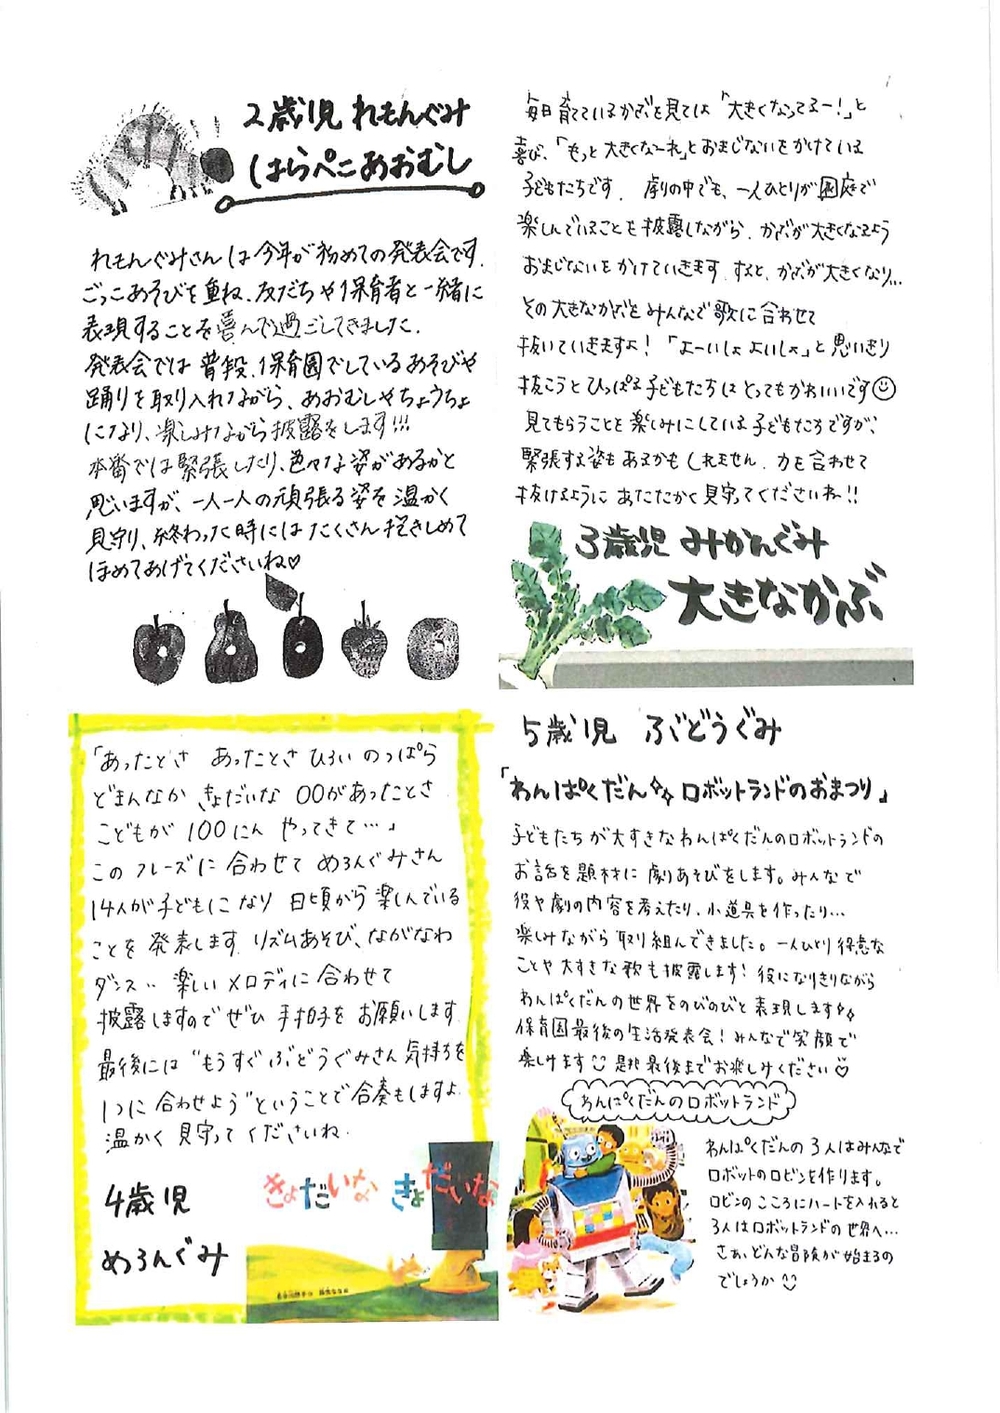 2歳児 れもんぐみ
はらぺこあおむし
れもんぐみさんは今年が初めての発表会です.
ごっこあそびを重ね、友だちや保育者と一緒に
表現することを喜んで過ごしてきました.
発表会では普段、保育園でしているあそびや
踊りを取り入れながら、あおむしやちょうちょ
になり、楽しみながら披露をします!!!
本番では緊張したり、色々な姿があるかと
思いますが、一人一人の頑張る姿を温かく
見守り、終わった時にはたくさん抱きしめて
ほめてあげてくださいね♡
毎日育てているかぶを見ては「大きくなってるー!」と
喜び、「もっと大きくな〜れ」とおまじないをかけている
子どもたちです. 劇の中でも、一人ひとりが園庭で
楽しんでいることを披露しながら、かぶが大きくなるよう
おまじないをかけていきます. すると、かぶが大きくなり…
その大きなかぶをみんなで歌に合わせて
抜いていきますよ!「よーいしょ よいしょ」と思いきり
抜こうとひっぱる子どもたちはとってもかわいいです☺
見てもらうことを楽しみにしている子どもたちですが、
緊張する姿もあるかもしれません. 力を合わせて
抜けるように あたたかく見守ってくださいね!!
3歳児 みかんぐみ
大きなかぶ
「あったとさ あったとさ ひろい のっぱら
どまんなか きょだいな 〇〇があったとさ
こどもが 100にん やってきて…」
このフレーズに合わせて めろんぐみさん
14人が子どもになり 日頃から楽しんでいる
ことを発表します. リズムあそび、ながなわ
ダンス‥ 楽しいメロディに合わせて
披露しますのでぜひ 手拍子をお願いします.
最後には“もうすぐぶどうぐみさん 気持ちを
1つに合わせよう”ということで合奏もしますよ.
温かく見守ってくださいね.
4歳児
めろんぐみ
きょだいな きょだいな
5歳児 ぶどうぐみ
「わんぱくだん ロボットランドのおまつり」
子どもたちが大すきなわんぱくだんのロボットランドの
お話を題材に劇あそびをします。みんなで
役や劇の内容を考えたり、小道具を作ったり…
楽しみながら取り組んできました。一人ひとり得意な
ことや大すきな歌も披露します! 役になりきりながら
わんぱくだんの世界をのびのびと表現します
保育園最後の生活発表会! みんなで笑顔で
楽しけます☺ 是非最後までお楽しけください♡
わんぱくだんのロボットランド
わんぱくだんの3人はみんなで
ロボットのロビンを作ります。
ロビンのこころにハートを入れると
3人はロボットランドの世界へ…
さあ、どんな冒険が始まるの
でしょうか☺